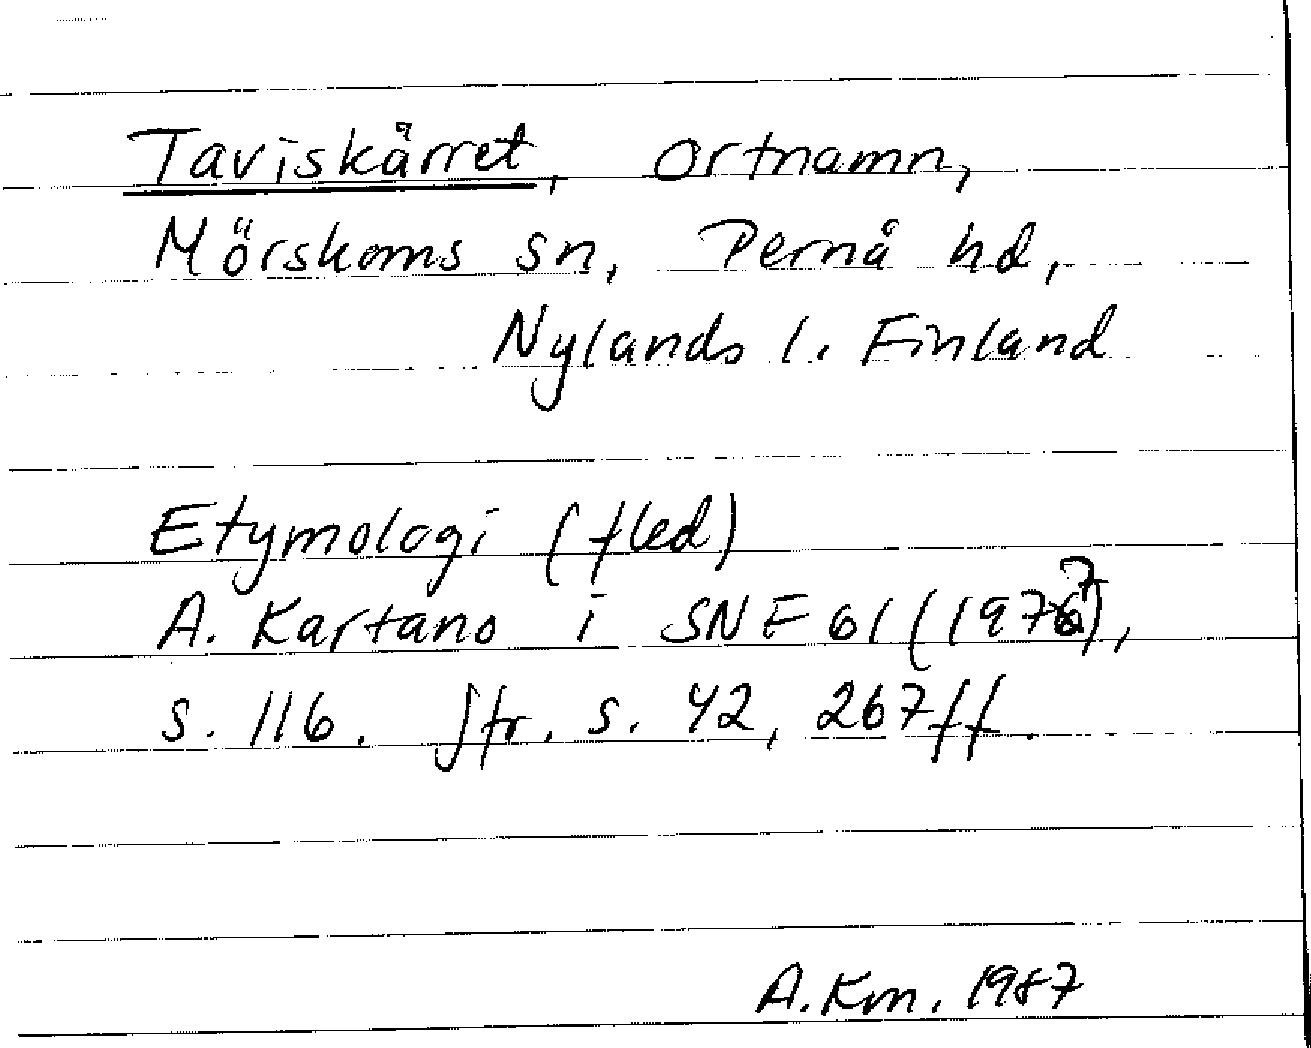 Taviskärret, ortnamn,
Mörskoms sn, Pernå hd,
Nylands l. Finland
Etymologi (fled)
A. Kartano i SNF 61 (1977),
s. 116. Jfr. s. 42, 267ff.
A.Km. 1987